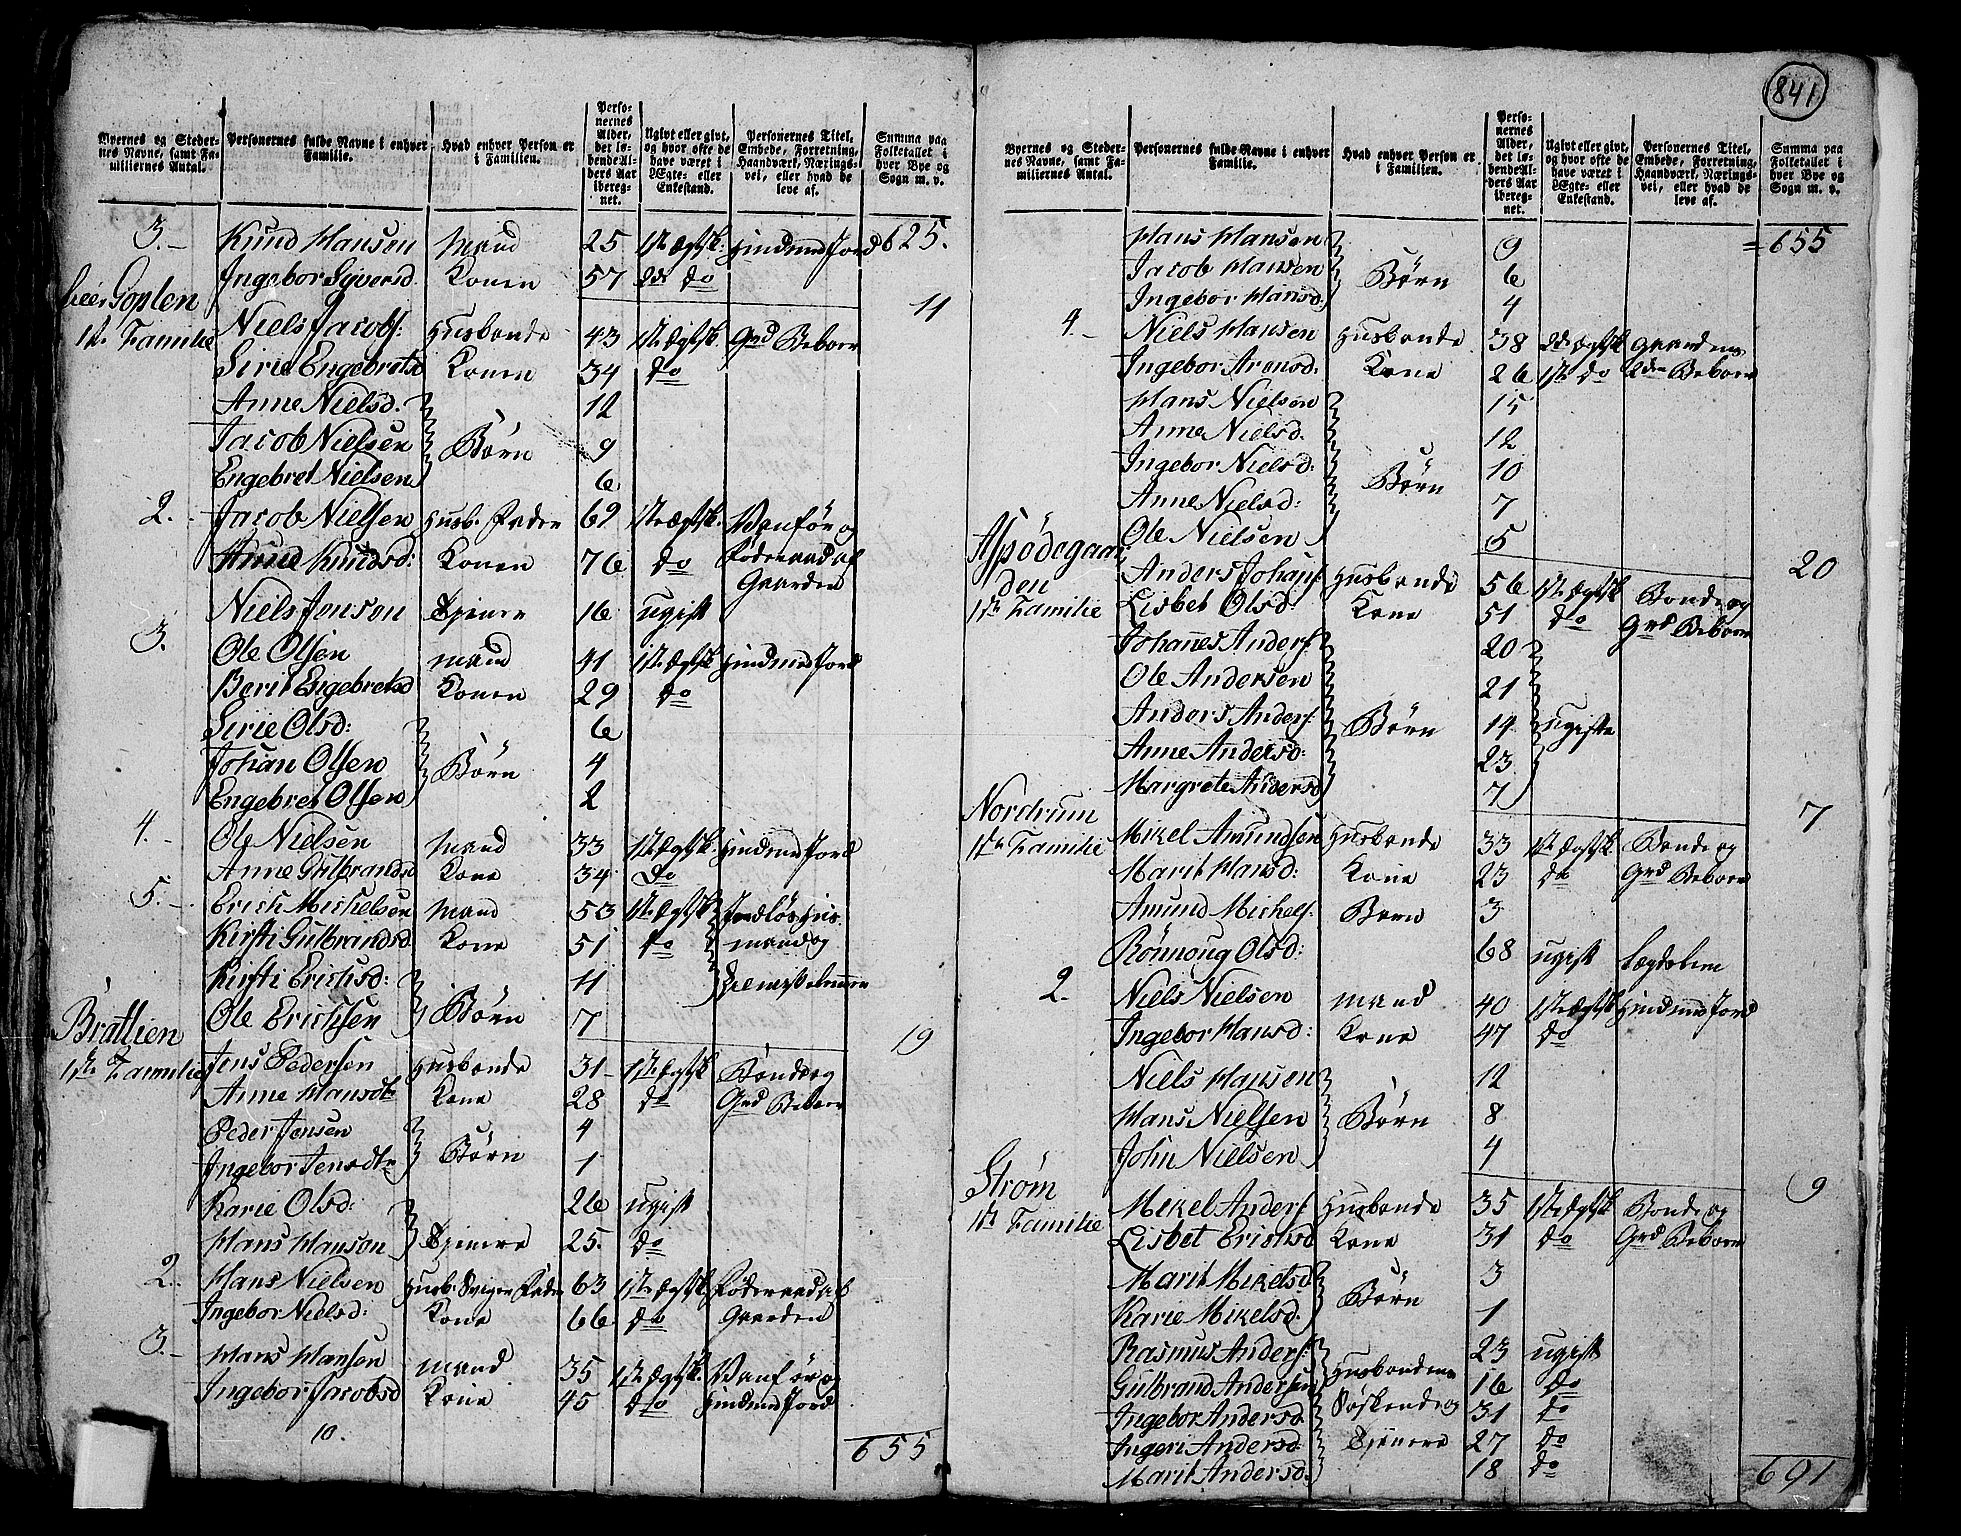 841
Byernes og Stedernes Navne, samt Familiernes Antal.
Personernes fulde Navne i enhver Familie.
Hvad enhver Person er i Familien.
Personernes Alder, det løbende Alders Aar iberegnet.
Ugivt eller givt, og hvor ofte de have været i Ægte- eller Enkestand.
Personernes Titel, Embede, Forretning, Haandværk, Næringsvei, eller hvad de leve af.
Summa paa Folketallet i hver Bye og Sogn m. v.
3. Knud Hansen Mand 25 1ste Ægtsk: Huusmd Jord 625.
Ingebor Syversd. Konen 57 2de do
Goplen 11
1ste Familie Niels Jacobs: Husbonde 43 1ste Ægtsk. Grd Beboer
Sirie Engebretsd Konen 34 do
Anne Nielsd. 12
Jacob Nielsen Børn 9
Engebret Nielsen 6
2. Jacob Nielsen Husb. Fader 69 1ste Ægtsk. Vanför og
Anne Knudsd: Konen 76 do Föderaad af
Gaarden
Niels Jenson Tjener 16 ugift
3. Ole Olsen Mand 41 1ste Ægtsk Huusmd Jord
Berit Engebretsd Konen 29 do
Sirie Olsd: 6
Johan Olsen Børn 4
Engebret Olsen 2
4. Ole Nielsen Mand 33 1ste Ægtsk. Huusmd Jord
Anne Gulbrandsd Kone 34 do
5. Erich Michelsen Mand 53 1ste Ægtsk Jordløs Huus
Kirsti Gulbrandsd Kone 51 do mand og
Kirsti Erichsd: 11
Ole Erichsen Børn 7
Brattlien 19
1ste Familie Jens Pedersen Husbonde 31 1ste Ægtsk Bonde og
Anne Hansdtr Kone 28 do Grd Beboer
Peder Jensen 4
Ingebor Jensdtr Børn 1
Karie Olsd: 26 ugift
Hans Hanson Tjenere 25. do
2. Hans Nielsen Husb: Sviger Fader 63 1ste Ægtsk. Föderaad af
Ingebor Nielsd: Kone 66 do Gaarden
3. Hans Hansen Mand 35 1ste Ægtsk. Vanför og
Ingebor Jacobsd Kone 45 do Huusmd Jord
10.
655
Byernes og Stedernes Navne, samt Familiernes Antal.
Personernes fulde Navne i enhver Familie.
Hvad enhver Person er i Familien.
Personernes Alder, det løbende Alders Aar iberegnet.
Ugivt eller givt, og hvor ofte de have været i Ægte- eller Enkestand.
Personernes Titel, Embede, Forretning, Haandværk, Næringsvei, eller hvad de leve af.
Summa paa Folketallet i hver Bye og Sogn m. v.
Hans Hansen 9 = 655
Jacob Hansen Børn 6
Ingebor Hansd: 4
4. Niels Hansen Husbonde 38 2de Ægtsk Gaardens
Ingebor Arensd: Kone 26 1ste do 2den Beboer
Hans Nielsen 15
Anne Nielsd. 12
Ingebor Nielsd: Børn 10
Anne Nielsd: 7
Ole Nielsen 5
Aspödegaarden 20
1ste Familie Anders Johans: Husbonde 56 1ste Ægtsk Bonde og
Lisbet Olsd. Kone 51 do Grd Beboer
Johannes Anders: 20
Ole Andersen 21
Anders Anders: Børn 14 ugifte
Anne Andersd: 23
Margrete Andersd 7
Nordrum 7
1ste Familie Mikel Amundsen Husbonde 33 1ste Ægtsk. Bonde og
Marit Hansd: Kone 23 do Grd Beboer
Amund Michels: Barn 3
Rönnoug Olsd: 68 ugift Lægdslem
2. Niels Nielsen Mand 40 1ste Ægtsk Huusmd Jord
Ingebor Hansd: Kone 47 do
Niels Hansen 12
Hans Nielsen Børn 8
John Nielsen 4
Strøm 9
1ste Familie Mikel Anders Husbonde 35 1ste Ægtsk Bonde og
Lisbet Erichsd Kone 31 do Grd Beboer
Marit Mikelsd 3
Karie Mikelsd. Børn 1
Rasmus Anders: 23 ugift
Gulbrand Andersen Husbondens 16 do
Ingebor Andersd Søskende og 31 do
Ingeri Andersd Tjenere 27 do
Marit Andersd. 18 do
691